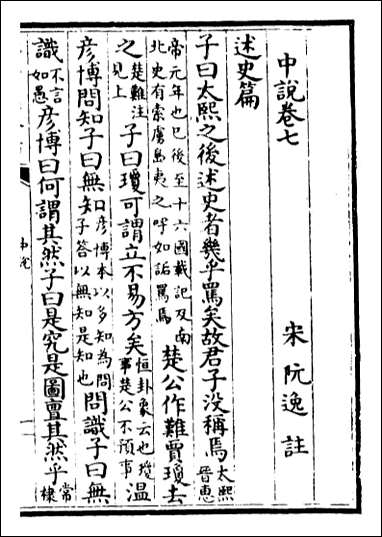 中說卷七
宋 阮逸 註
述史篇
子曰太熙之後述史者幾乎罵矣故君子没稱焉太熙晉惠
帝元年也已後至十六國載記及南北史有索虜島夷之呼如詬罵焉楚公作難賈瓊去
之楚難注見上子曰瓊可謂立不易方矣恒卦象云也瓊事楚公不預事温
彦博問知子曰無知彦博本以多知為問子答以無知是知也問識子曰無
識不言如愚彦博曰何謂其然子曰是究是圖亶其然乎常棣